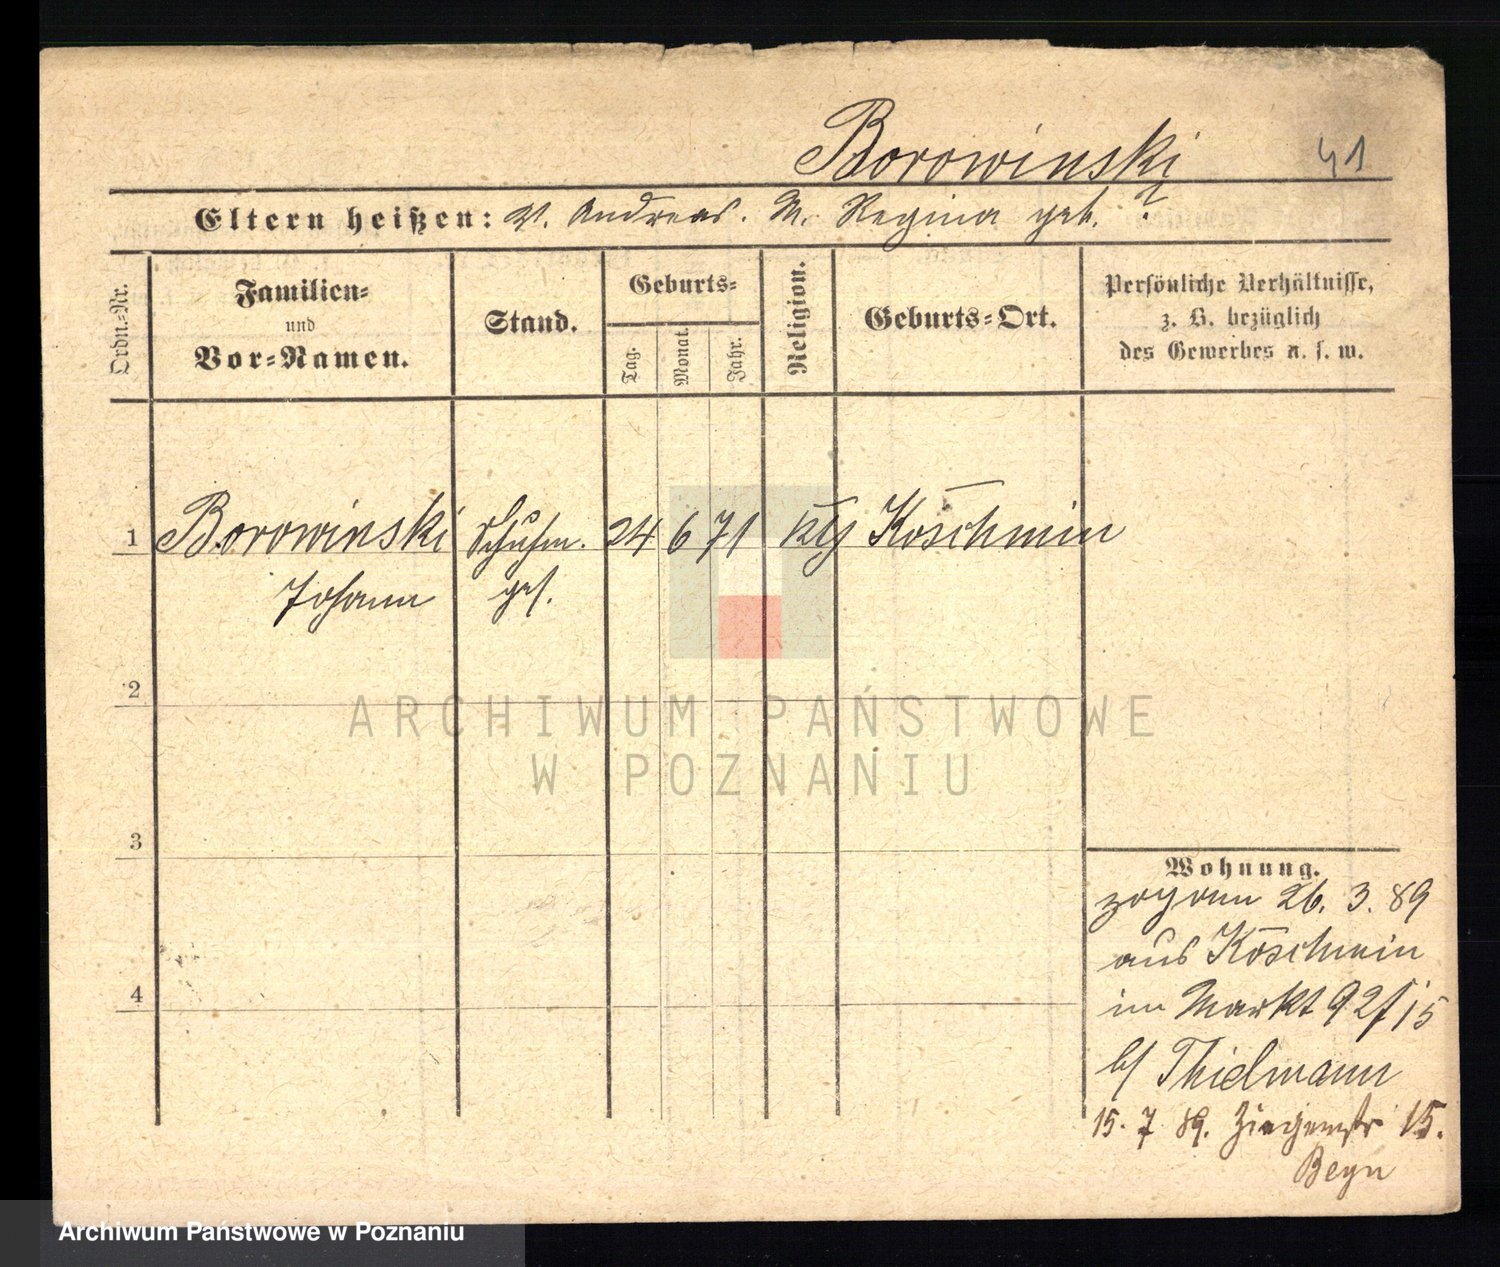 Borowinski
41
Eltern heißen: V. Andreas. M. Regina geb. ?
Ordn.-Nr.
Familien-
und
Vor-Namen.
Stand.
Geburts-
Tag.
Monat.
Jahr.
Religion.
Geburts-Ort.
Persönliche Verhältnisse,
z. B. bezüglich
des Gewerbes u. s. w.
1 Borowinski Schuhm. 24 6 71 kth Koschmin
Johann ges.
2
3
4
Wohnung.
zogann 26. 3. 89
aus Koschmin
im Markt 92/15
b/ Thielmann
15. 7 89. Ziegenstr 15.
ARCHIWUM PAŃSTWOWE
W POZNANIU
Archiwum Państwowe w Poznaniu